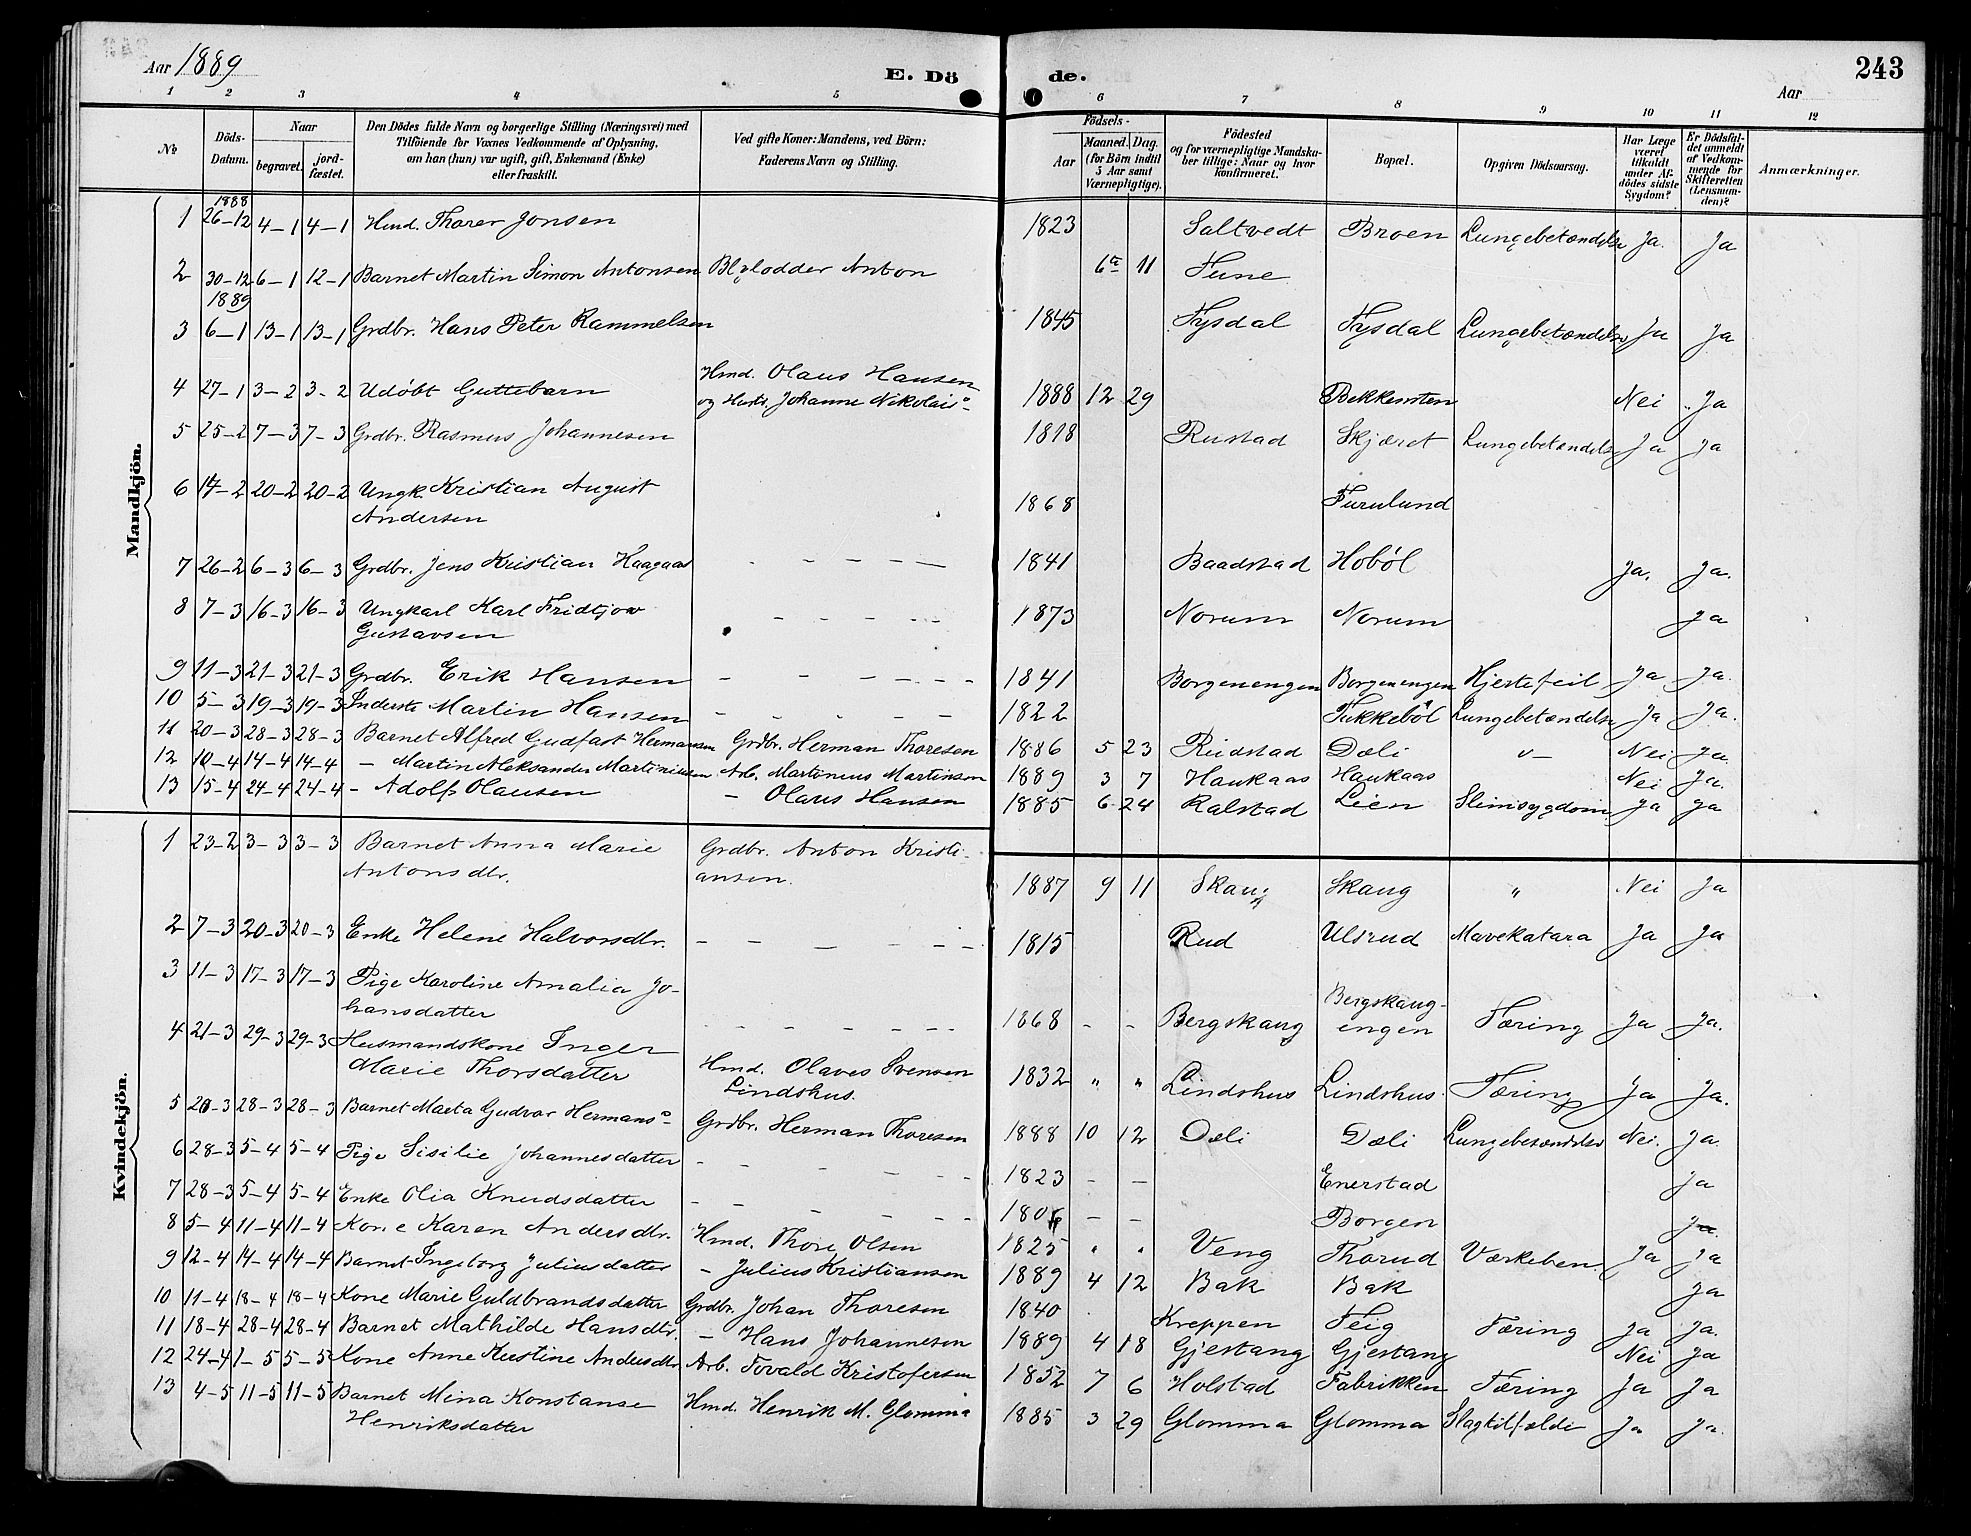 Aar 1889
E. Dö
de.
243
Aar
1 2 3 4 5 6 7 8 9 10 11 12
№ Döds-Datum. Naar begravet. jord-fæstet. Den Dödes fulde Navn og borgerlige Stilling (Næringsvei) med Tilföiende for Voxnes Vedkommende af Oplysning, om han (hun) var ugift, gift, Enkemand (Enke) eller fraskilt. Ved gifte Koner: Mandens, ved Börn: Faderens Navn og Stilling.
Födsels- Aar Maaned. Dag. (for Börn indtil 5 Aar samt Værnepligtige). Födested og for værnepligtige Mandskaber tillige: Naar og hvor konfirmeret. Bopæl. Opgiven Dödsaarsag. Har Læge været tilkaldt under Afdödes sidste Sygdom? Er Dödsfaldet anmeldt af Vedkommende for Skifteretten (Lensmanden)? Anmærkninger.
Mandkjön.
1888
1 26–12 4–1 4–1 Hmd. Thorer Jonsen 1823 Saltvedt Broen Lungebetændelse Ja. Ja
2 30–12 6–1 12–1 Barnet Martin Simon Antonsen Anton 11 Tune
1889
3 6–1 13–1 13–1 Grdbr. Hans Peter Rammelsen 1845 Tysdal Tysdal Lungebetændelse Ja Ja
4 27–1 3–2 3–2 Udöbt Guttebarn Hmd. Olaus Hansen og Hustr. Johanne Nikolais 1888 12 29 Bekkensten Nei Ja
5 25–2 7–3 7–3 Grdbr. Rasmus Johannesen 1818 Rustad Skjæret Lungebetændelse Ja Ja
6 14–2 20–2 20–2 Ungk. Kristian August Andersen 1868 Furulund
7 26–2 6–3 6–3 Grdbr. Jens Kristian Haagaas – – – – 1841 Baadstad Hoböl Ja. Ja.
8 7–3 16–3 16–3 Ungkarl Karl Fridtjov Gustavsen – – – – 1873 Norum Norum Ja
9 11–3 21–3 21–3 Grdbr. Erik Hansen – – – – 1841 Borgenengen Borgenengen Hjertefeil Ja Ja.
10 5–3 19–3 19–3 Inderste Martin Hansen – – – – 1822 Tukkeböl Lungebetændelse Ja Ja.
11 20–3 28–3 28–3 Barnet Alfred Gudfast Hermansen Grdbr. Herman Thoresen 1886 5 23 Rudstad Dæli Nei Ja.
12 10–4 14–4 14–4 – Martin Aleksander Martiniusen Arb. Martinius Martinsen 1889 3 7 Haukaas Haukaas Nei Ja.
13 15–4 24–4 24–4 – Adolf Olausen – Olaus Hansen 1885 6 24 Kalstad Lien Slimsygdom Ja Ja
Kvindekjön.
1 23–2 3–3 3–3 Barnet Anna Marie Antonsdtr. Grdbr. Anton Kristiansen. 1887 9 11 Skaug Skaug " Nei Ja
2 7–3 20–3 20–3 Enke Helene Halvorsdtr. – – – – 1815 Rud Ulsrud Mavekatara Ja Ja
3 11–3 17–3 17–3 Pige Karoline Amalia Johansdatter – – – – 1868 – – Bergskaug Bergskaug-engen Tæring Ja Ja.
4 21–3 29–3 29–3 Husmandskone Inger Marie Thorsdatter Hmd. Olaves Svensen Lindshus. 1832 " " Lindshus Lindshus. Tæring Ja Ja.
5 20–3 28–3 28–3 Barnet Marta Gudrar Hermans Grdbr. Herman Thoresen 1888 10 12 Dæli Dæli Lungebetændelse Nei. Ja.
6 28–3 5–4 5–4 Pige Sisilie Johannesdatter – – – – 1823 – – Enerstad Ja
7 28–3 5–4 5–4 Enke Olia Knudsdatter – – – – – – Borgen Ja.
8 5–4 11–4 11–4 Kone Karen Andersdtr. Hmd. Thore Olsen 1825 " " Veng Thorud Værkeben. Ja Ja
9 12–4 14–4 14–4 Barnet Ingeborg Juliusdatter – Julius Kristiansen 1889 4 12 Bak Bak Ja
10 11–4 18–4 18–4 Kone Marie Guldbrandsdatter Grdbr. Johan Thoresen 1840 Kreppen Feig Tæring Ja Ja.
11 18–4 28–4 28–4 Barnet Mathilde Hansdtr. – Hans Johannesen 1889 4 18 Gjestang Gjestang Nei Ja
12 24–4 1–5 5–5 Kone Anne Kristine Andersdtr. Arb. Tovald Kristofersen 1852 7 6 Holstad Fabrikken Tæring Ja Ja
13 4–5 11–5 11–5 Barnet Mina Konstanse Henriksdatter Hmd. Henrik M. Glomma 1885 3 29 Glomma Glomma Slagtilfælde Ja Ja.